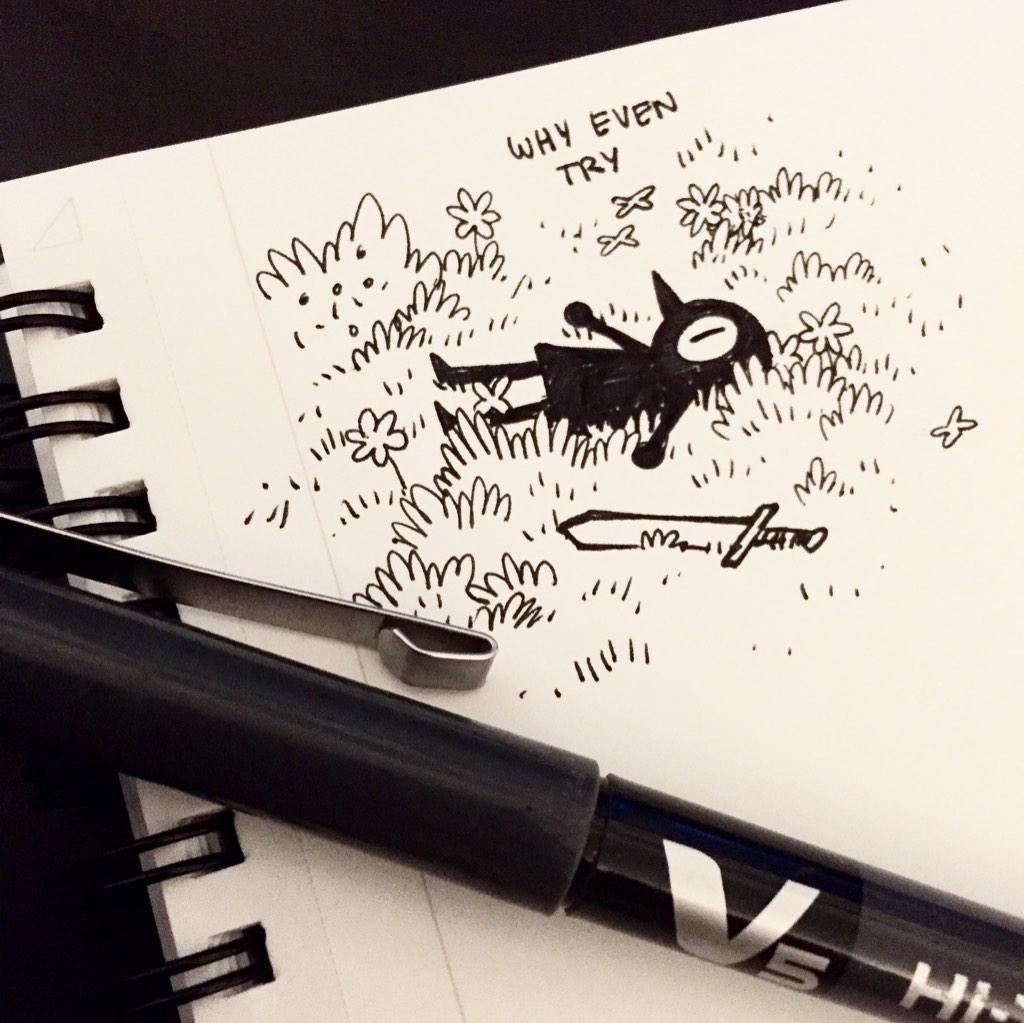 WHY EVEN
TRY
V5
Hi-